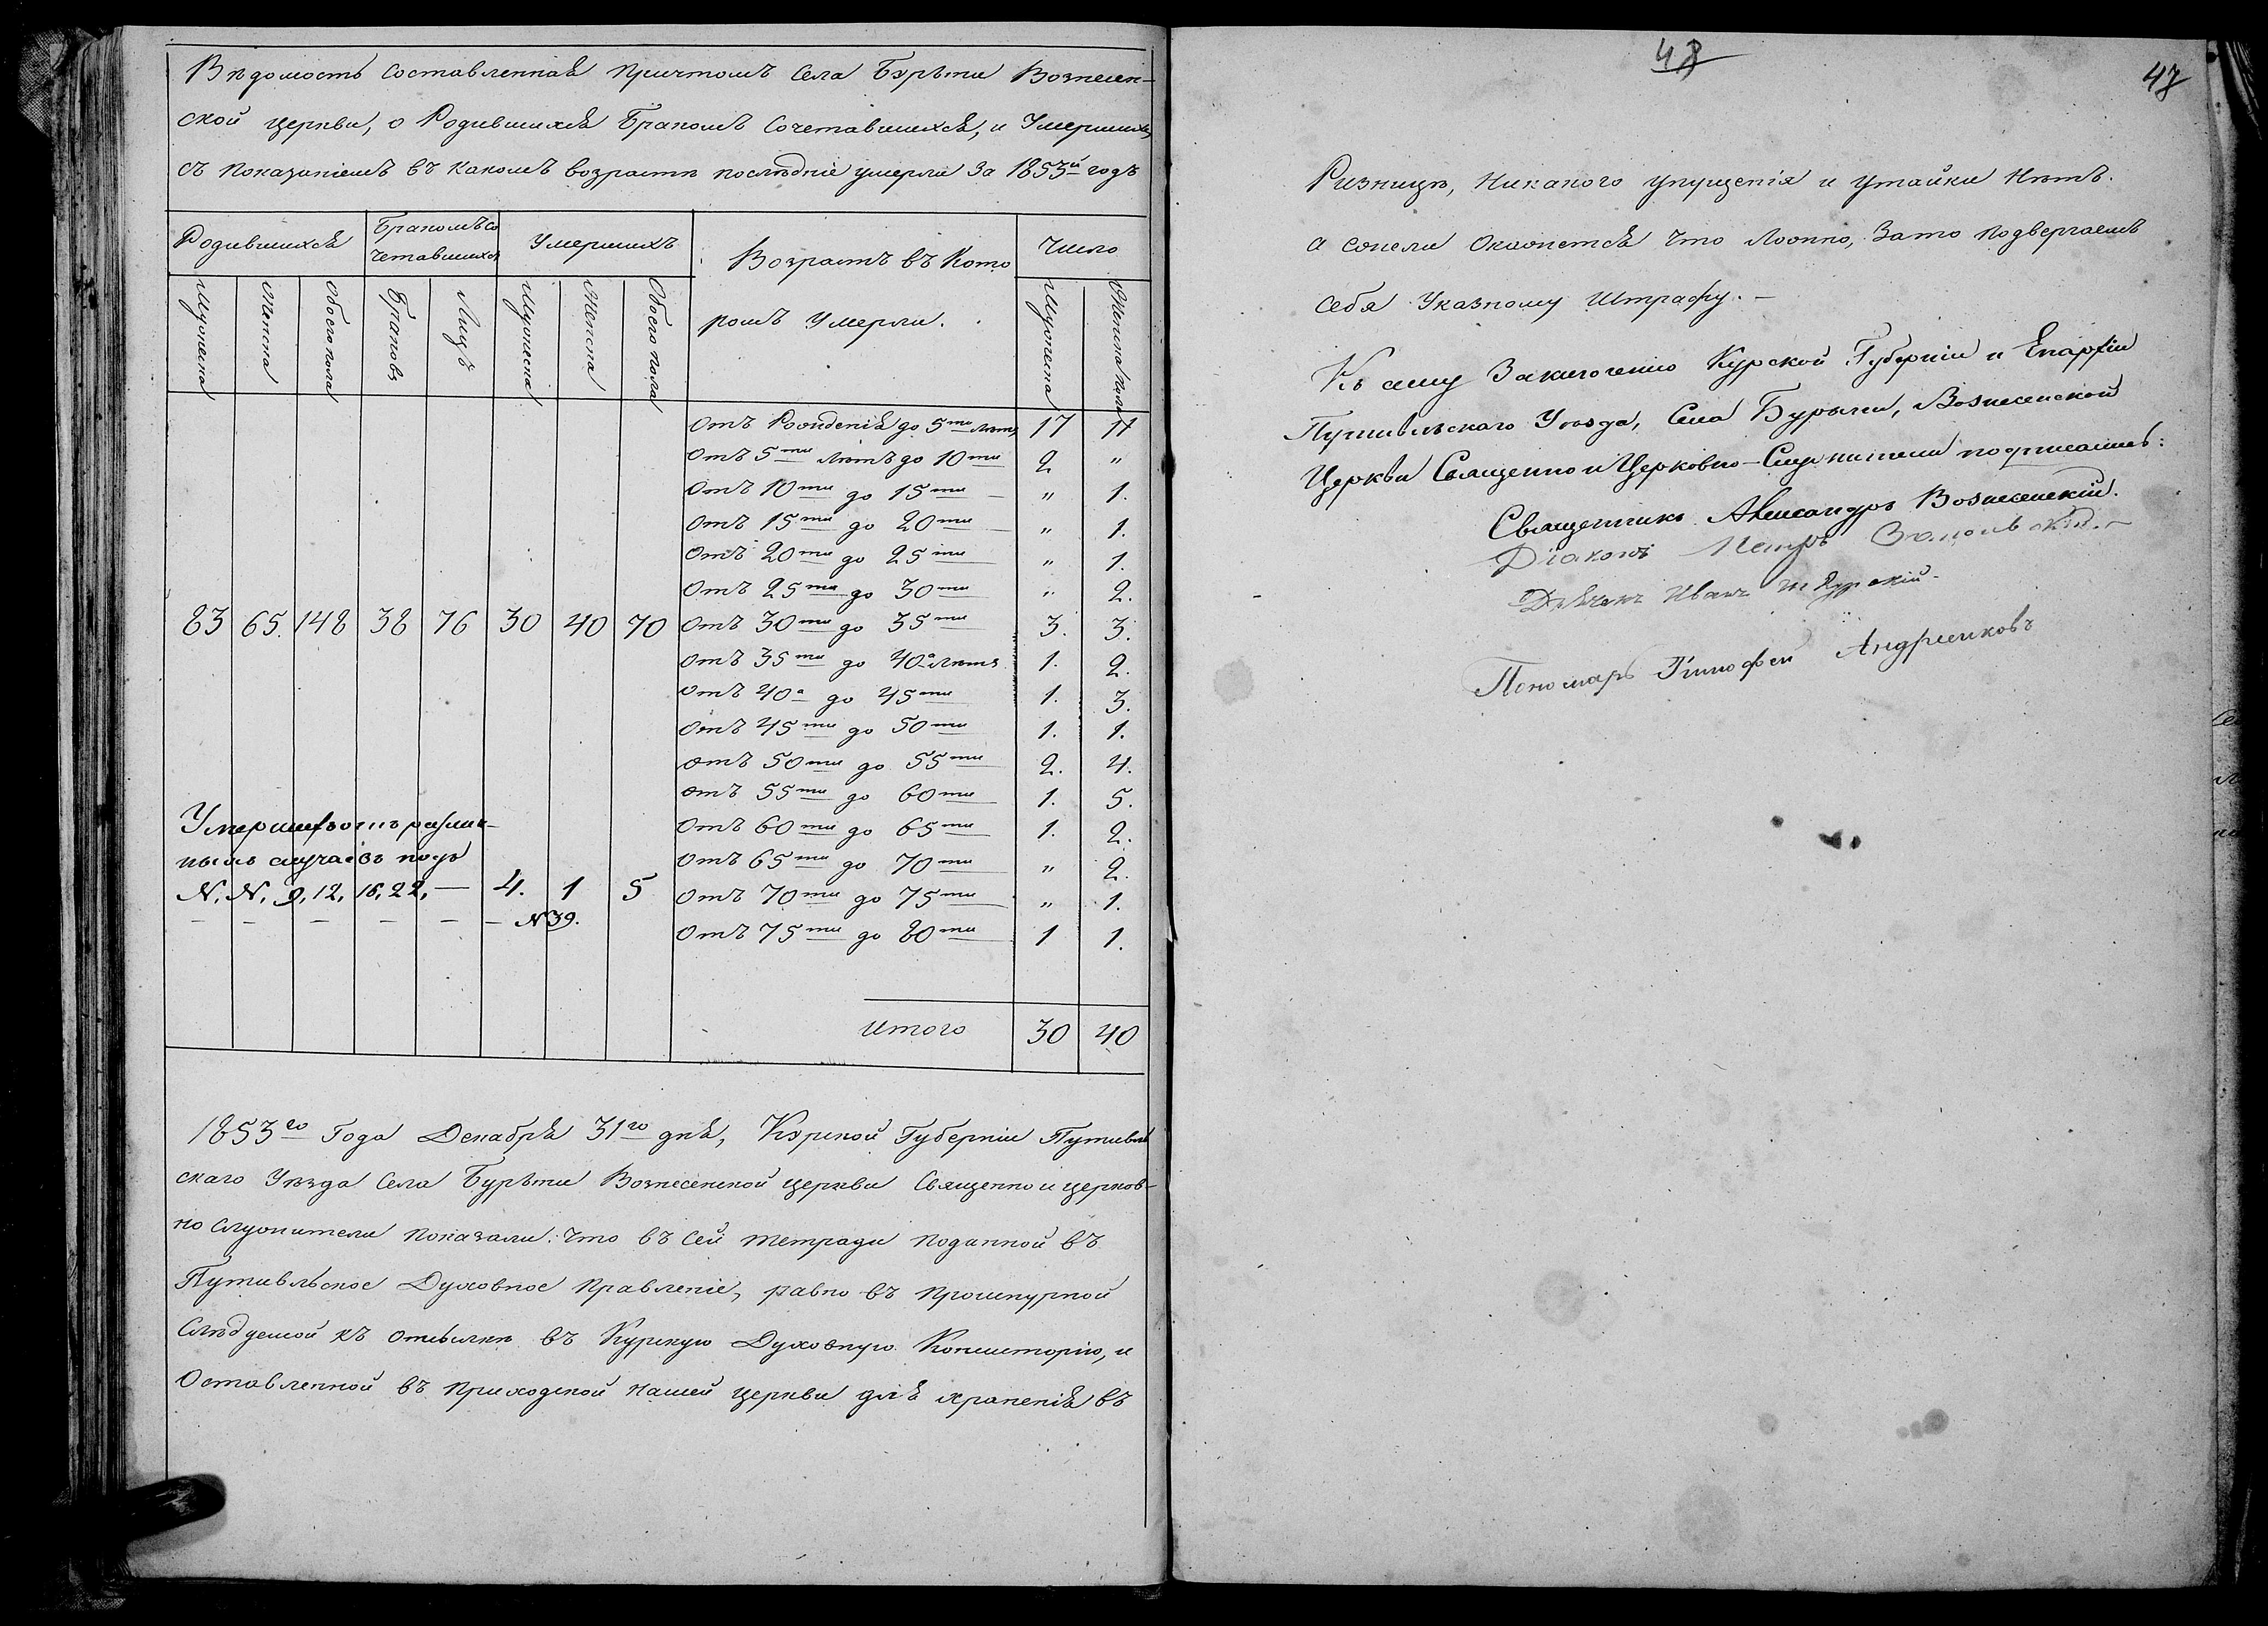 Вѣдомость составленная причтомъ села Бурыни Вознесен-
ской церкви, о Родившихся Бракомъ Сочетавшихся, и Умершихъ,
съ показаніемъ въ какомъ возрастѣ послѣдніе умерли За 1853й годъ
Родившихся
Бракомъ со
четавшихся
Умершихъ
Возрастъ въ кото
ромъ Умерли.
Число
Мужеска
Женска
Обоего пола
Браковъ
Лицъ
Мужеска
Женска
Обоего пола
Мужеска
Женска пола
Отъ Рожденія до 5ти лѣтъ 17 11
Отъ 5ти лѣтъ до 10ти 2 "
Отъ 10ти до 15ти — " 1.
Отъ 15ти до 20ти — " 1.
Отъ 20ти до 25ти " 1.
Отъ 25ти до 30ти " 2.
83 65. 148 38 76 30 40 70 Отъ 30ти до 35ти 3. 3.
Отъ 35ти до 40а лѣтъ 1. 2.
Отъ 40а до 45ти 1. 3.
Отъ 45ти до 50ти 1. 1.
Отъ 50ти до 55ти 2. 4.
Отъ 55ти до 60ти 1. 5.
Отъ 60ти до 65ти 1. 2.
Отъ 65ти до 70ти " 2.
Отъ 70ти до 75ти " 1.
Отъ 75ти до 80ти 1 1.
Умершихъ отъ различ-
ныхъ случаевъ подъ
N. N. 9, 12, 16, 22, — 4. 1 5
— — — — — — N 39.
Итого 30 40
1853го Года Декабря 31го дня, Курской Губерніи Путивль
скаго Уѣзда Села Бурыни Вознесенской церкви Священно и церков-
но служители показали: что въ сей тетради поданной въ
Путивльское Духовное Правленіе, равно въ прошнурной
Слѣдуемой къ отсылкѣ въ Курскую Духовную Консисторію, и
Оставленной въ приходской нашей церкви для храненія въ
48
47
Ризницѣ, никакого упущенія и утайки нѣтъ.
а ежели окажется что ложно, За то подвергаемъ
себя Указному Штрафу. —
Къ сему Заключенію Курской Губерніи и Епархіи
Путивльскаго Уѣзда, Села Бурыни, Вознесенской
Церкви Священно и Церковно-Служители подписались:
Священникъ Александръ Вознесенскій.
Діаконъ Петръ
Дьячекъ Иванъ
Пономарь Тимофей Андрѣенковъ